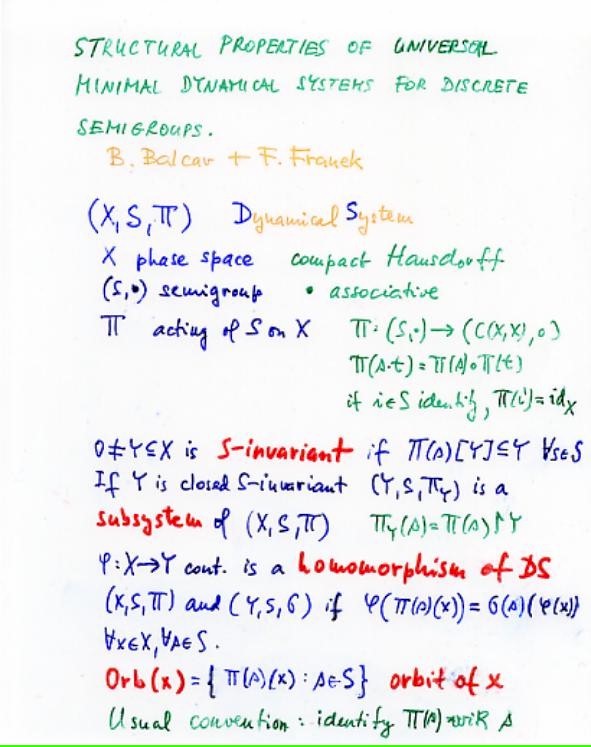 STRUCTURAL PROPERTIES OF UNIVERSAL
MINIMAL DYNAMICAL SYSTEMS FOR DISCRETE
SEMIGROUPS.
B. Balcar + F. Franek
(X, S, π) Dynamical System
X phase space compact Hausdorff
(S,•) semigroup • associative
π acting of S on X π: (S,•) → (C(X,X),∘)
π(s·t) = π(s)∘π(t)
if i∈S identity, π(i) = id_X
0≠Y⊆X is S-invariant if π(s)[Y]⊆Y ∀s∈S
If Y is closed S-invariant (Y,S,π_Y) is a
subsystem of (X,S,π) π_Y(s) = π(s)↾Y
φ: X→Y cont. is a homomorphism of DS
(X,S,π) and (Y,S,σ) if φ(π(s)(x)) = σ(s)(φ(x))
∀x∈X, ∀s∈S.
Orb(x) = { π(s)(x) : s∈S } orbit of x
Usual convention : identify π(s) with s